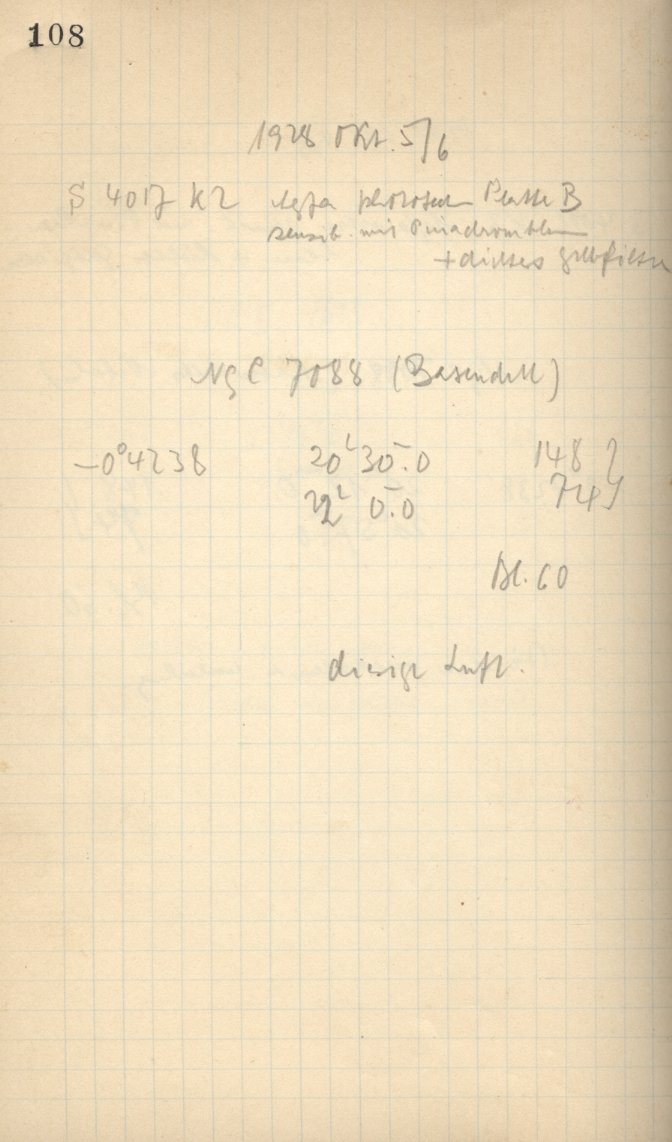 108
1928 Okt. 5/6
S 4017 K2 Agfa photosech Platte B
sensib. mit Pinachromblau
+ dichtes Gelbfilter
NGC 7088 (Baxendell)
-0°4238 20ʰ30ᵐ.0 148 }
22ʰ 0ᵐ.0 74 }
Bl. 60
diesige Luft.